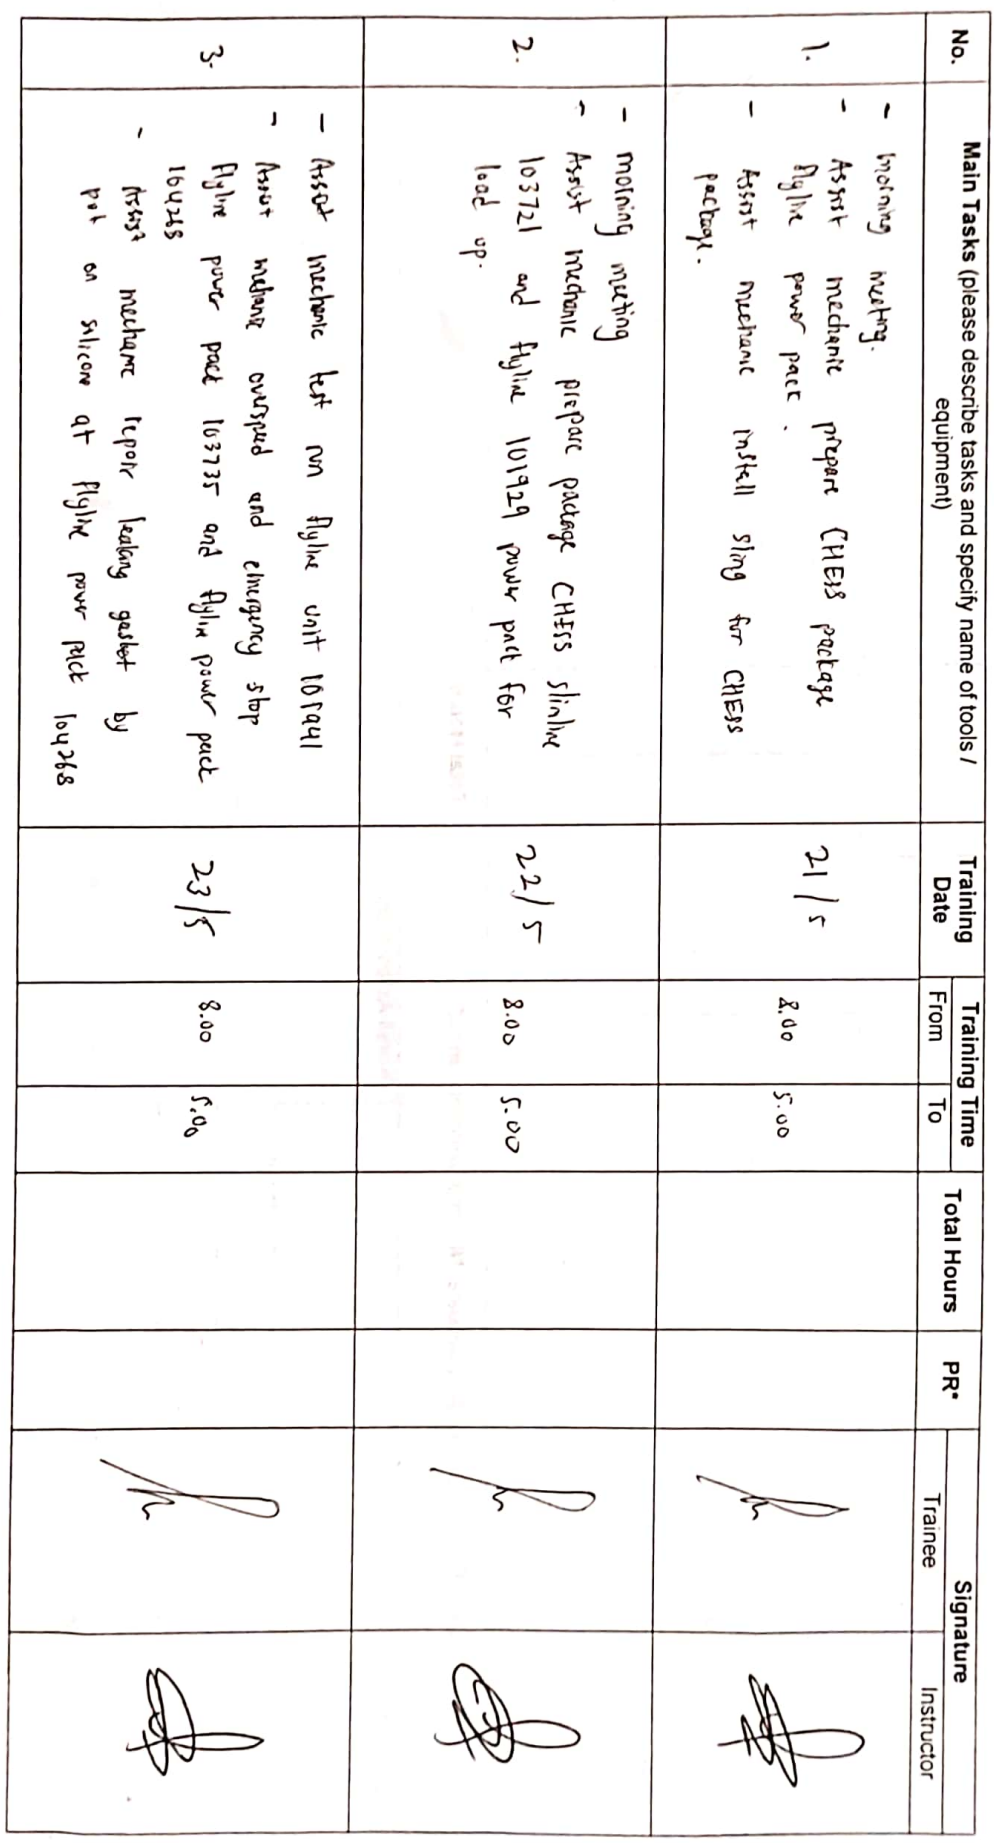 No.
Main Tasks (please describe tasks and specify name of tools /
equipment)
Training
Date
Training Time
From
To
Total Hours
PR*
Signature
Trainee
Instructor
1.
- Morning meeting.
- Assist mechanic prepare CHESS package
flyline power pack.
- Assist mechanic install sling for CHESS
package.
21/5
8.00
5.00
2.
- morning meeting
- Assist mechanic prepare package CHESS slinline
103721 and flyline 101929 power pack for
load up.
22/5
8.00
5.00
3.
- Assist mechanic test run flyline unit
- Assist mechanic overspeed and emergency stop
flyline power pack 103735 and flyline power pack
104268
- Assist mechanic repair leaking gasket by
put on silicone at flyline power pack 104268
23/5
8.00
5.00